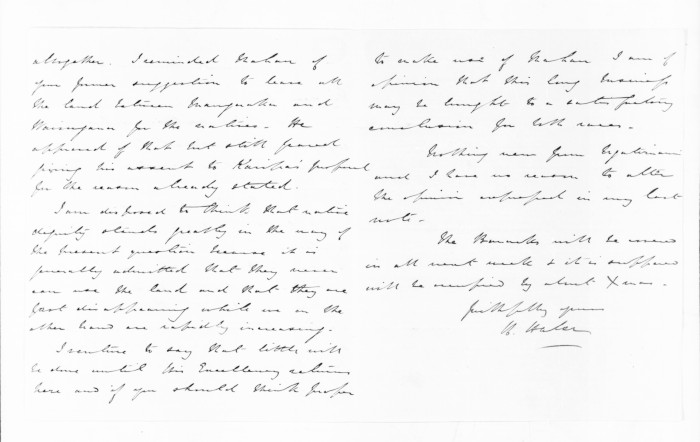 altogether. I reminded Mahau of
your former suggestion to leave all
the land between Maungaraka and
Waiongana for the natives. He
approved of that but still feared
giving his assent to Karika's proposal
for the reason already stated.
I am disposed to think that native
dignity stands greatly in the way of
the present question because it is
generally admitted that they never
can use the land and that they are
fast disappearing while we on the
other hand are rapidly increasing.
I venture to say that little will
be done until His Excellency returns
here and if you should think proper
to make use of Mahau I am of
opinion that this long business
may be brought to a satisfactory
conclusion for both races.
Nothing new from
and I have no reason to alter
the opinion expressed in my last
note.
The Barracks will be
in all next week & it is supposed
will be occupied by about Xmas.
faithfully yours
H. Halse